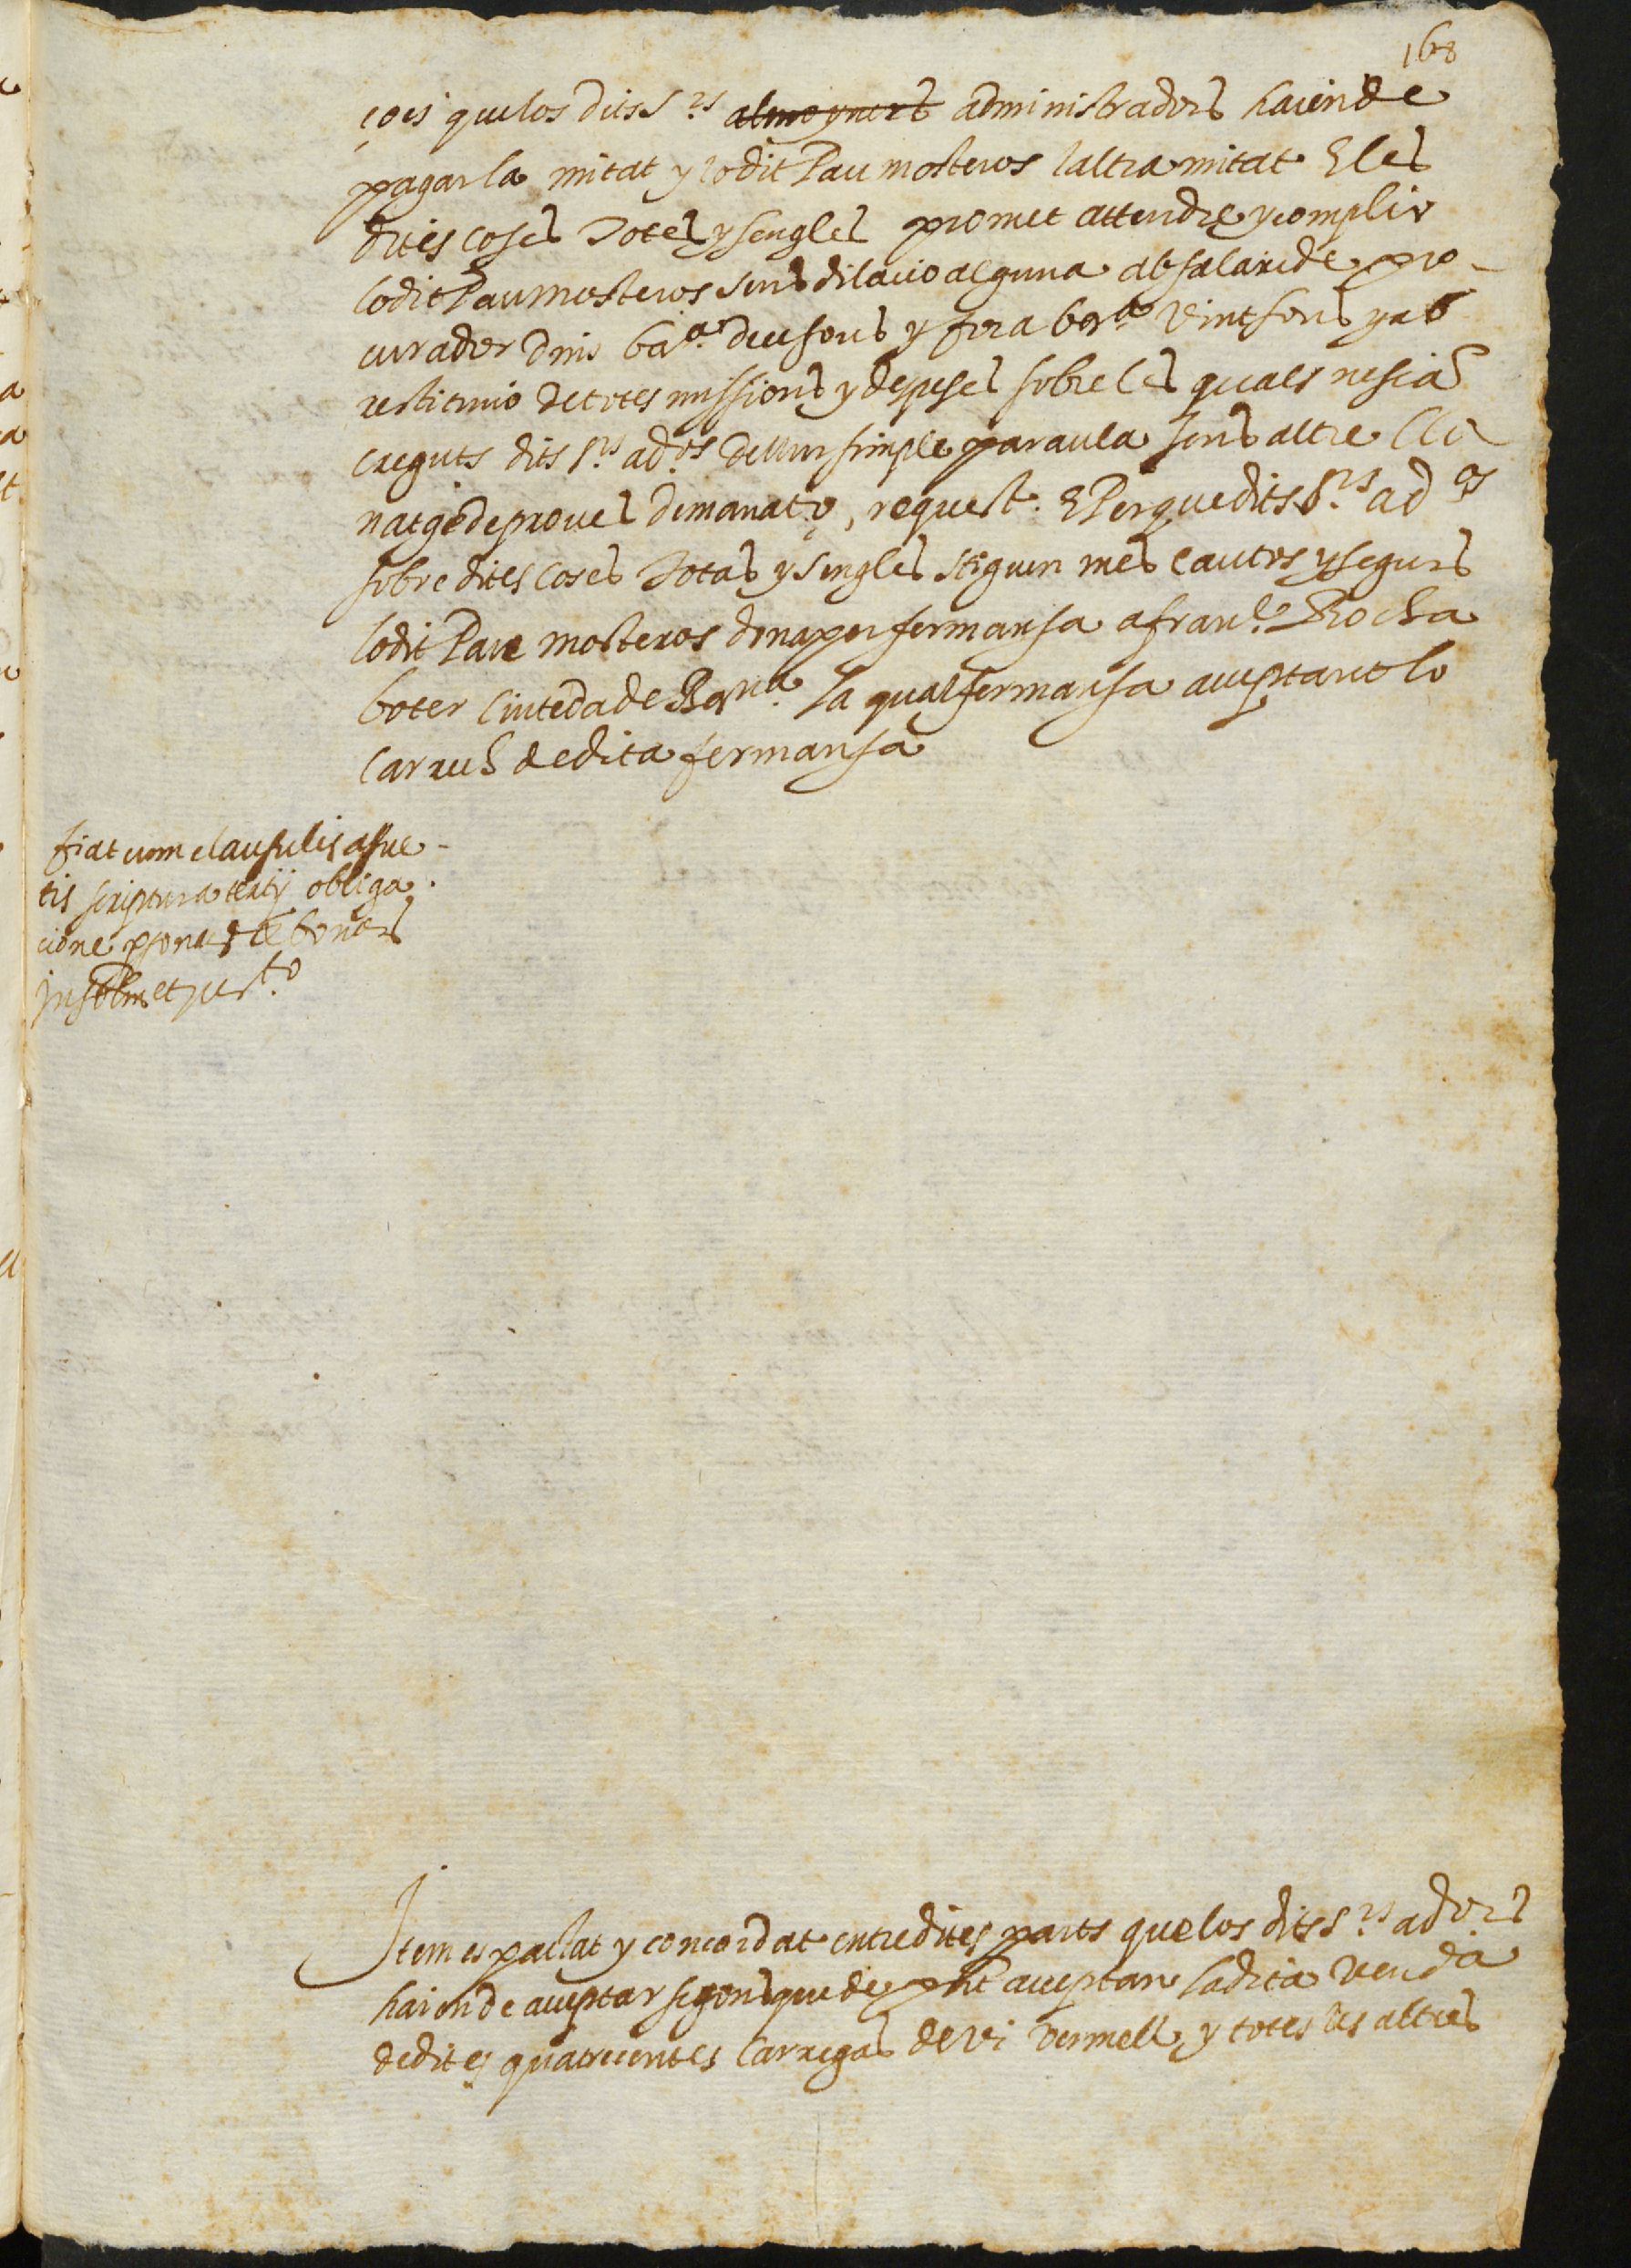 168
ço es que los dits S.rs almoyners administradors haien de
pagar la mitat y lo dit Pau mosteros laltra mitat E les
dites coses Totes y sengles promet attendre y complir
lo dit Pau mosteros sens dilacio alguna ab salari de pro-
curador dins ba.na deu sous y fora bar.na vint sous y ab
restitucio de totes missions y despeses sobre les quals ne sian
creguts dits S.rs ad.ors de llur simple paraula sens altre lli
natge de proves demanat, request. E Perque dits S.rs ad.ors
sobre dites coses Totas y sengles stiguen mes cautos y segurs
lo dit Pau mosteros dona per fermansa a fran.co Rocha
boter ciutedà de Bar.na la qual fermansa acceptant lo
carrech de dita fermansa
fiat cum clausulis asue-
tis scriptura tertij obliga
cione persone et bonorum
jur.to
Item es pactat y concordat entre dites parts que los dits S.rs ad.ors
haien de acceptar segons que de pnt acceptan la dita venda
de dites quatrecentes carregas de vi vermell y totes les altres